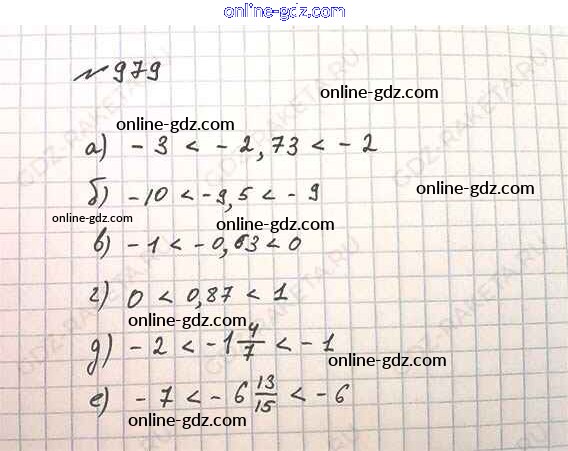 online-gdz.com
№ 979
online-gdz.com
а) - 3 < - 2,73 < - 2
б) -10 < -9,5 < - 9
online-gdz.com
online-gdz.com
в) -1 < -0,63 < 0
г) 0 < 0,87 < 1
online-gdz.com
д) - 2 < -1 4/7 < - 1
online-gdz.com
е) - 7 < - 6 13/15 < - 6
online-gdz.com
GDZ-RAKETA.RU
GDZ-RAKETA.RU
GDZ-RAKETA.RU
GDZ-RAKETA.RU